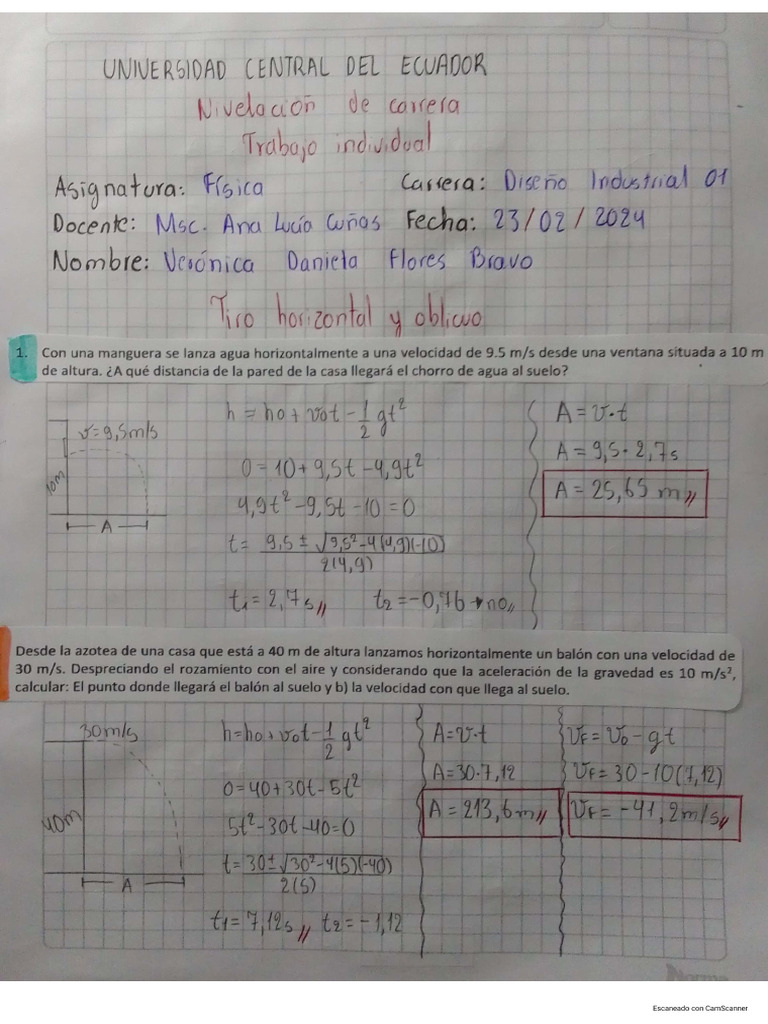 UNIVERSIDAD CENTRAL DEL ECUADOR
Nivelación de carrera
Trabajo individual
Asignatura: Física Carrera: Diseño Industrial 01
Docente: Msc. Ana Lucía Cuñas Fecha: 23/02/2024
Nombre: Verónica Daniela Flores Bravo
Tiro horizontal y oblicuo
1. Con una manguera se lanza agua horizontalmente a una velocidad de 9.5 m/s desde una ventana situada a 10 m
de altura. ¿A qué distancia de la pared de la casa llegará el chorro de agua al suelo?
v=9,5m/s
10m
A
h = ho + vot - 1/2 gt²
0 = 10 + 9,5t - 4,9t²
4,9t² - 9,5t - 10 = 0
t = 9,5 ± √9,5² - 4(4,9)(-10)
2(4,9)
t1 = 2,7s // t2 = -0,76 → no //
A = v·t
A = 9,5 · 2,7s
A = 25,65 m //
Desde la azotea de una casa que está a 40 m de altura lanzamos horizontalmente un balón con una velocidad de
30 m/s. Despreciando el rozamiento con el aire y considerando que la aceleración de la gravedad es 10 m/s²,
calcular: El punto donde llegará el balón al suelo y b) la velocidad con que llega al suelo.
30m/s
40m
A
h = ho + vot - 1/2 gt²
0 = 40 + 30t - 5t²
5t² - 30t - 40 = 0
t = 30 ± √30² - 4(5)(-40)
2(5)
t1 = 7,12s // t2 = -1,12
A = v·t
A = 30·7,12
A = 213,6m //
VF = Vo - gt
VF = 30 - 10(7,12)
VF = -41,2m/s //
Norma
Escaneado con CamScanner